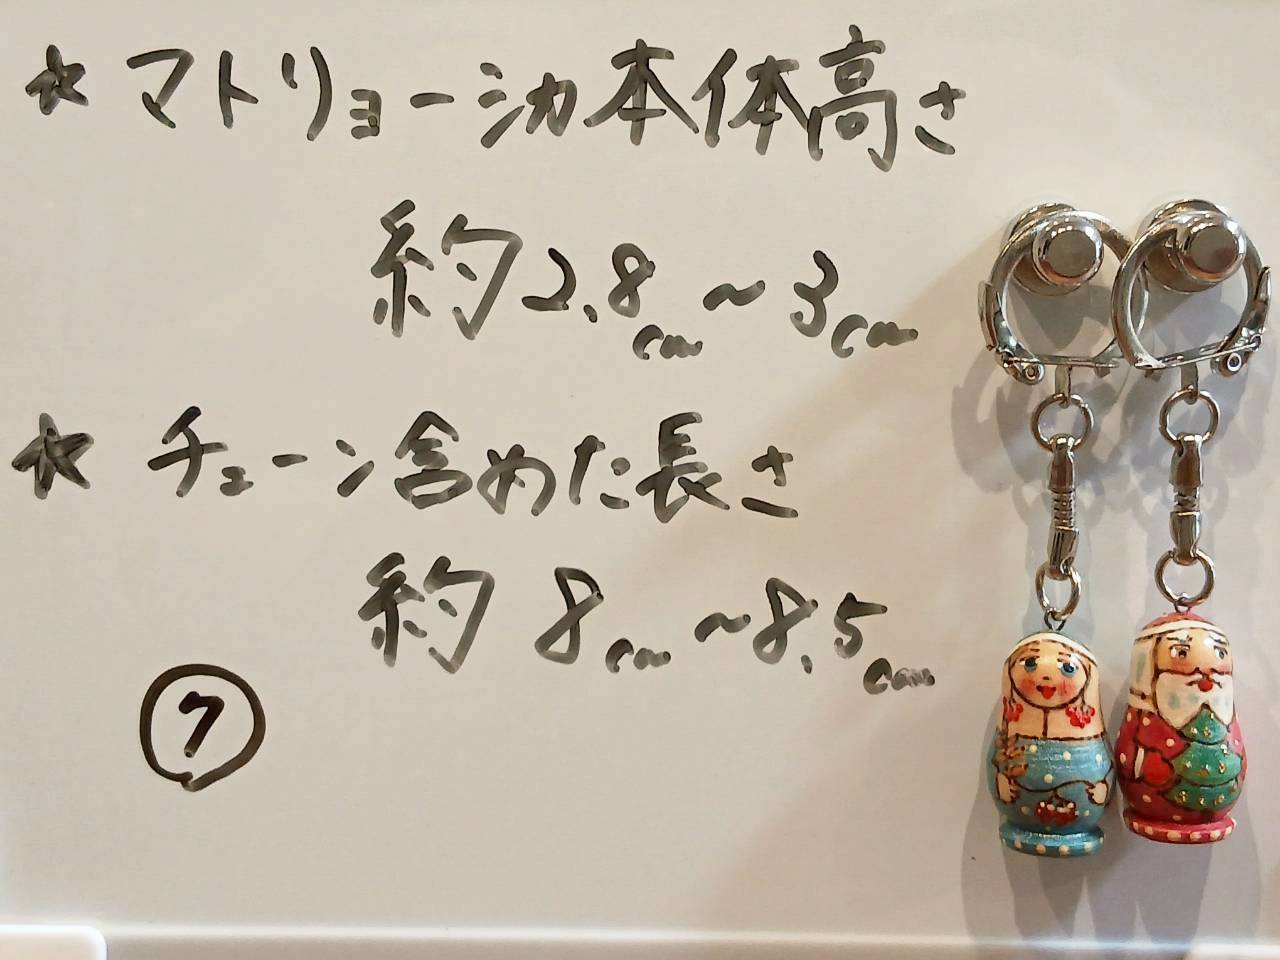 ★ マトリョーシカ本体高さ
約2.8cm〜3cm
★ チェーン含めた長さ
約 8cm〜8.5cm
⑦